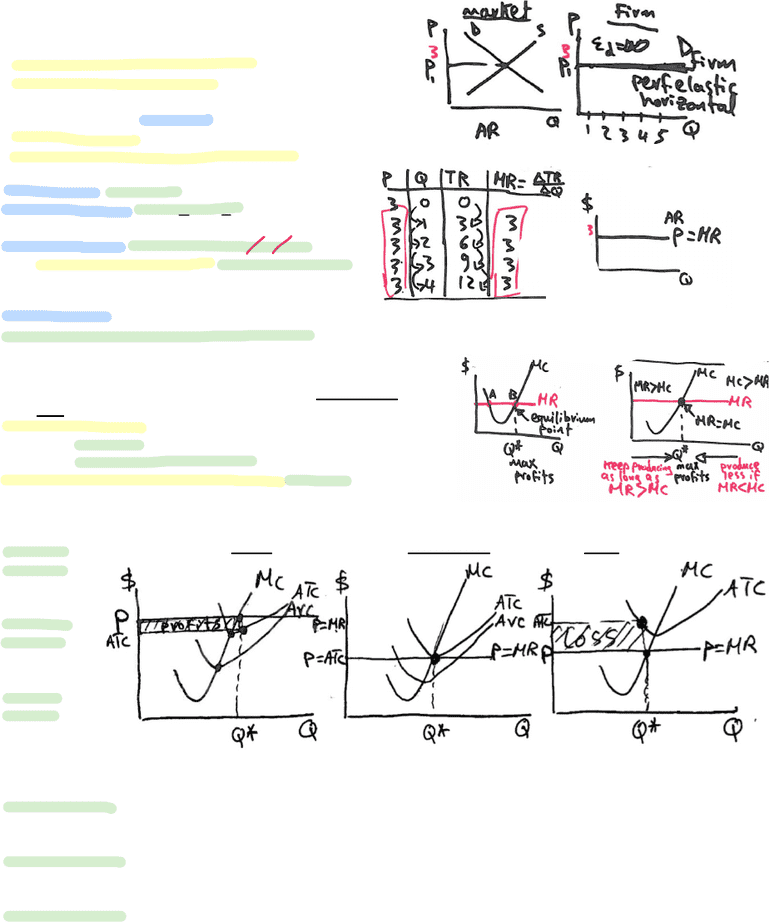 market
Firm
P
D
S
3
P₁
AR
Q
P
3
P₁
Ɛd=∞
D firm
perf elastic
horizontal
1 2 3 4 5 Q
P Q TR MR= ΔTR/ΔQ
3 0 0
3 1 3 3
3 2 6 3
3 3 9 3
3 4 12 3
$
3
AR
P=MR
Q
$
MC
A B MR
equilibrium
point
Q* Q
max
profits
$
MC
MR>MC MC>MR
MR
MR=MC
Q
Q*
keep producing max produce
as long as profits less if
MR>MC MR<MC
$
MC
ATC
AVC
P
profits
P=MR
ATC
Q* Q
$
MC
ATC
AVC
P=ATC
P=MR
Q* Q
$
MC
ATC
ATC
Loss
P
P=MR
Q* Q